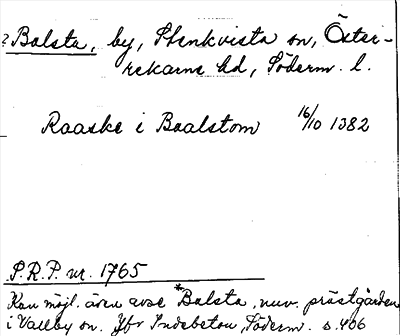 ? Balsta, by, Stenkvista sn, Öster-
rekarne hd, Söderm. l.
Raaske i Baalstom 16/10 1382
S.R.P. nr. 1765
Kan möjl. även avse *Balsta, nuv. prästgården
i Vallby sn. Jfr Indebetou, Söderm. s. 406